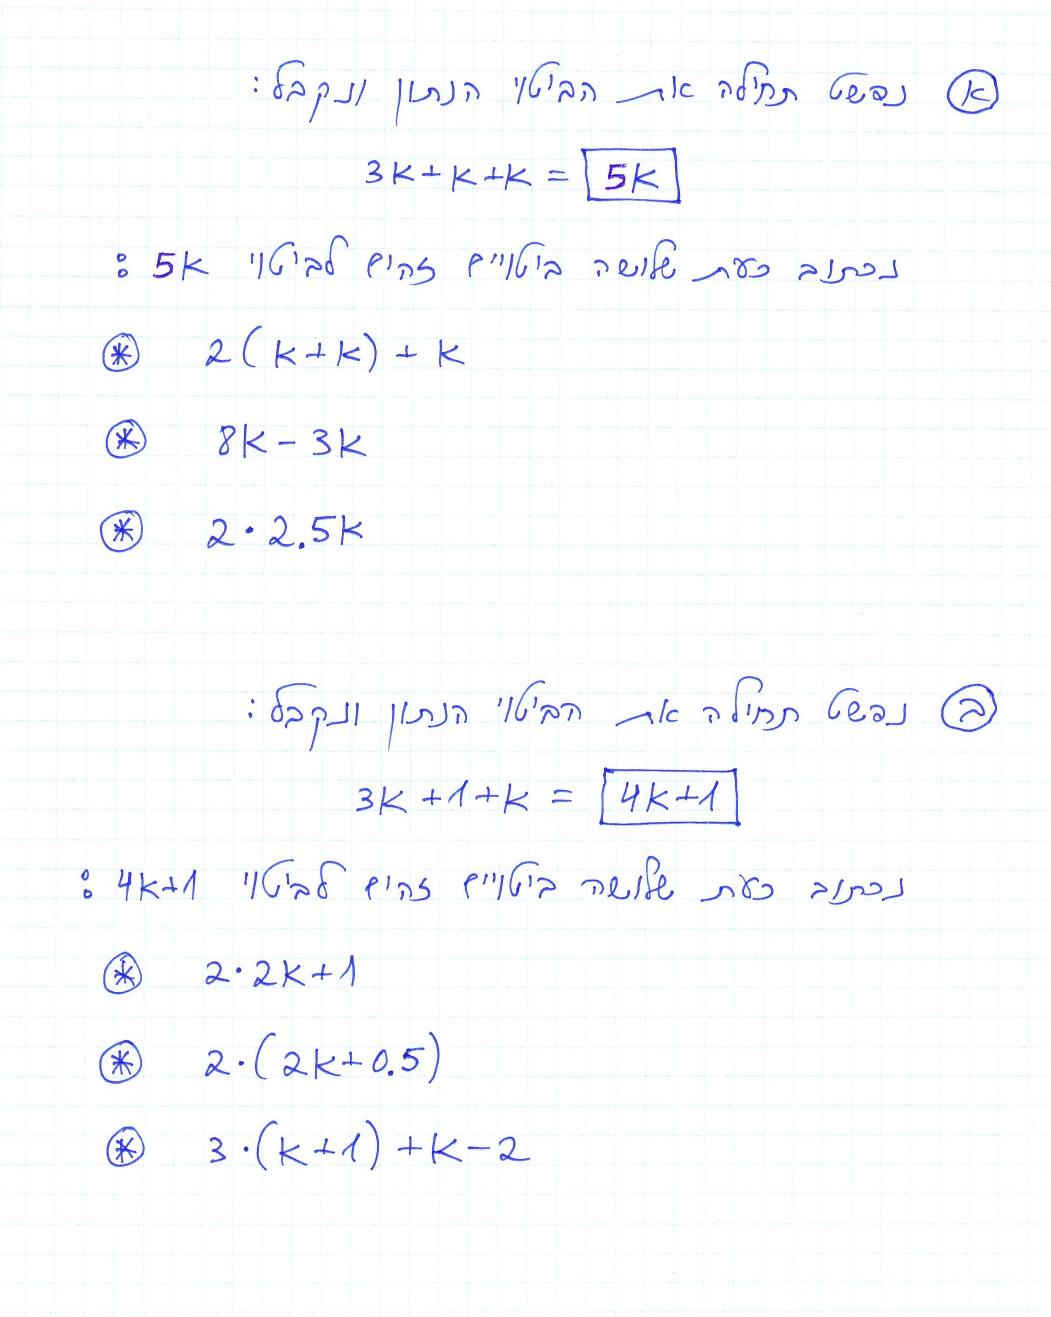 א נפשט תחילה את הביטוי הנתון ונקבל:
3k+k+k = 5k
נכתוב כעת שלושה ביטויים זהים לביטוי 5k:
* 2(k+k)+k
* 8k-3k
* 2·2.5k
ב נפשט תחילה את הביטוי הנתון ונקבל:
3k+1+k = 4k+1
נכתוב כעת שלושה ביטויים זהים לביטוי 4k+1:
* 2·2k+1
* 2·(2k+0.5)
* 3·(k+1)+k-2